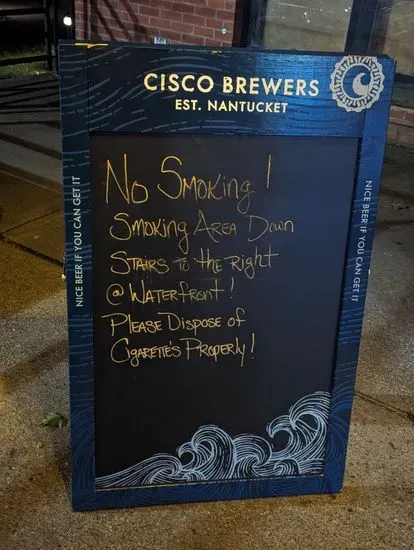 CISCO BREWERS
EST. NANTUCKET
NICE BEER IF YOU CAN GET IT
No Smoking!
Smoking Area Down
Stairs to the Right
@ Waterfront!
Please Dispose of
Cigarette's Properly!
NICE BEER IF YOU CAN GET IT